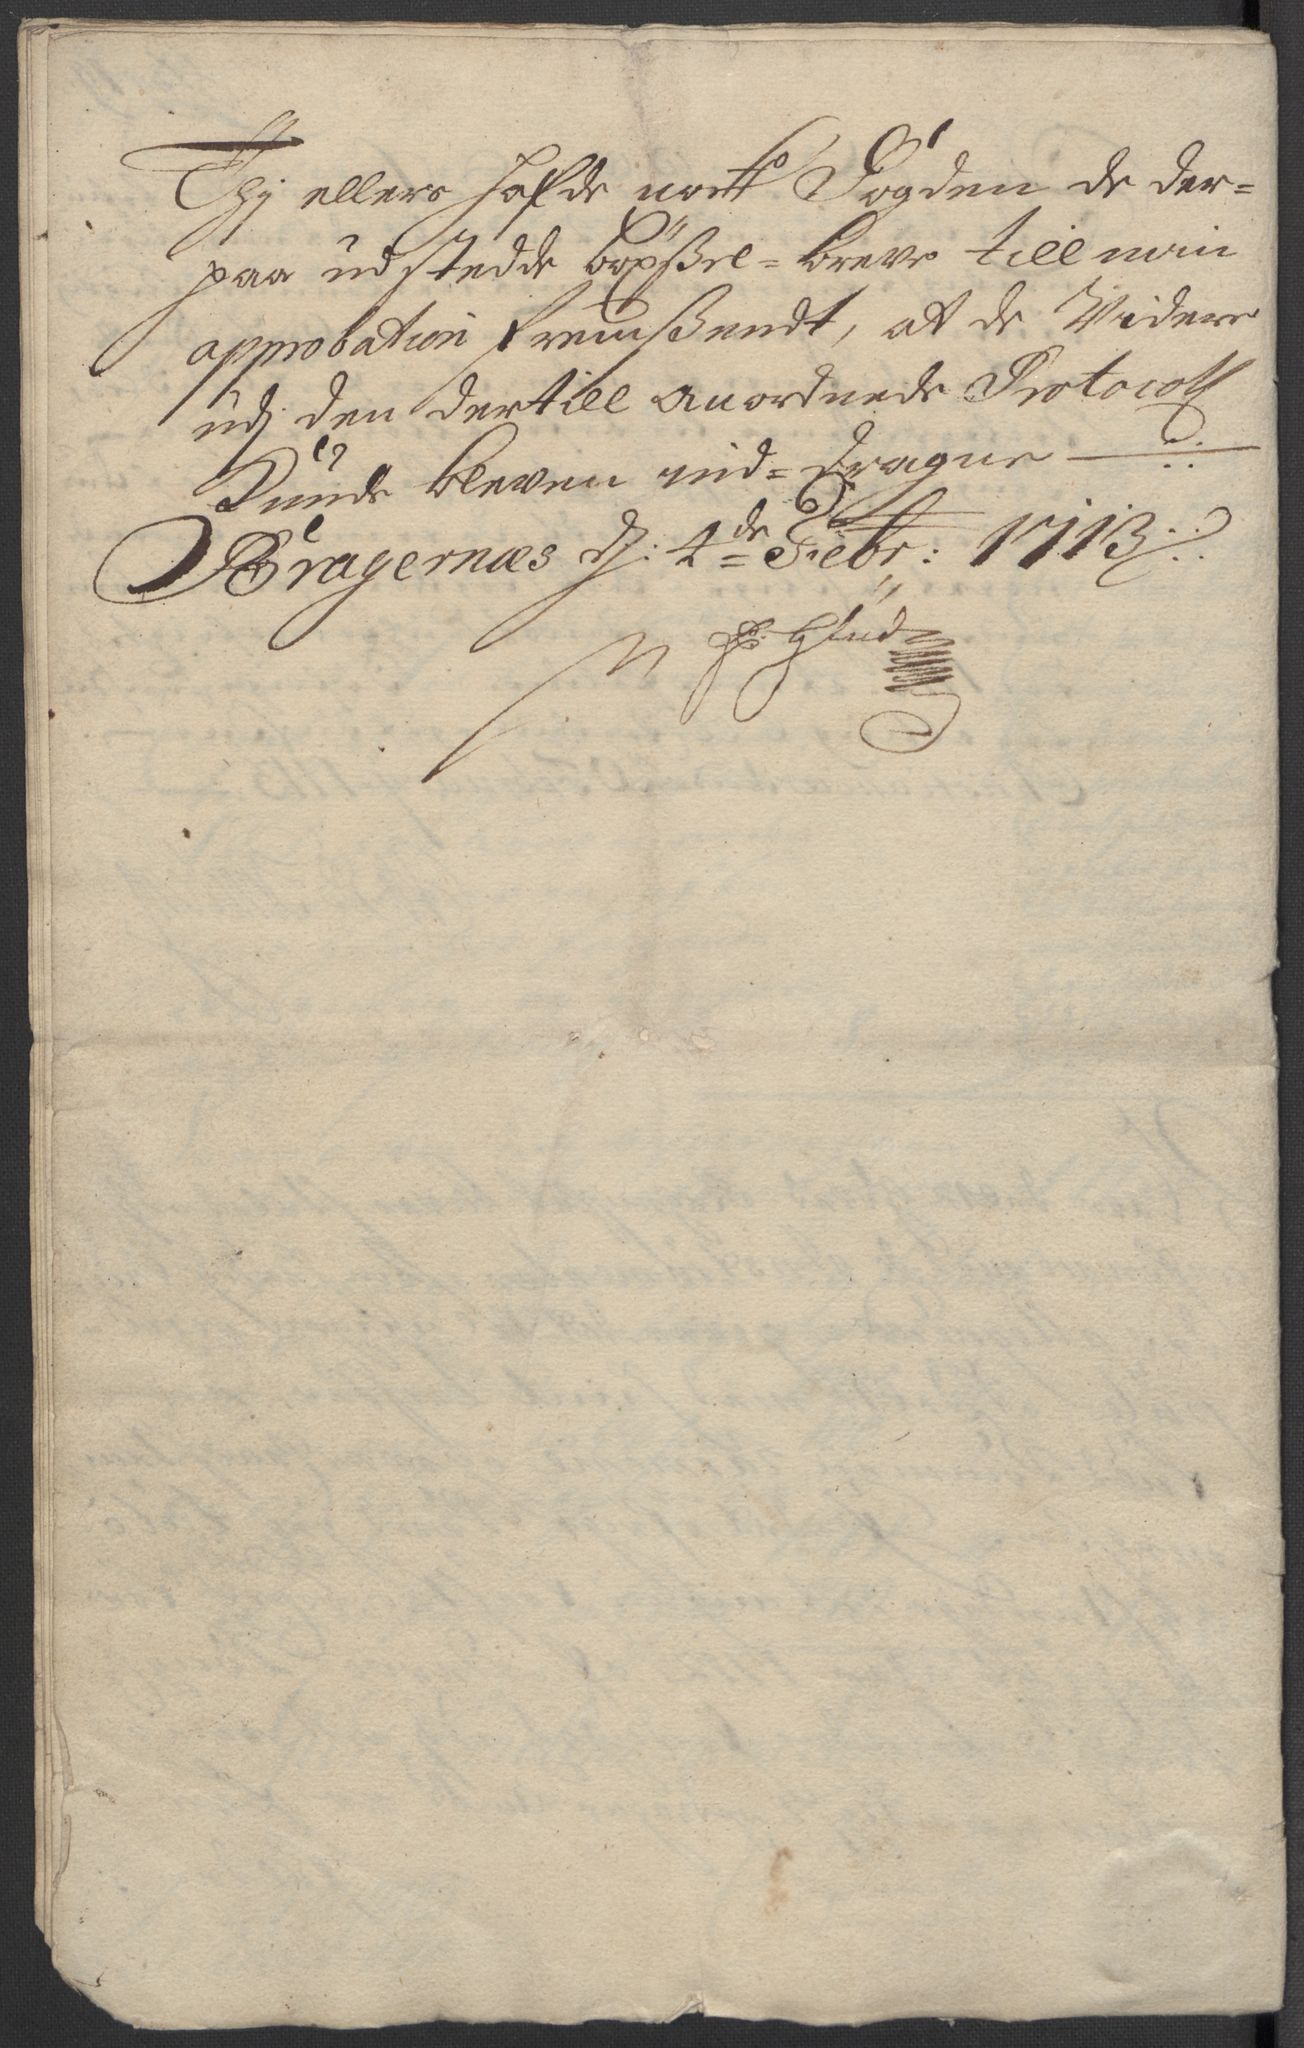 Thj ellers hafde nock Fogden de der=
paa udstedde böxsel=breve till min
approbation fremsendt, at de Videre
udj den dertill anordnede Protocoll
Kunde bleven ind=dragne
Bragernæs dj: 4de Febr: 1713